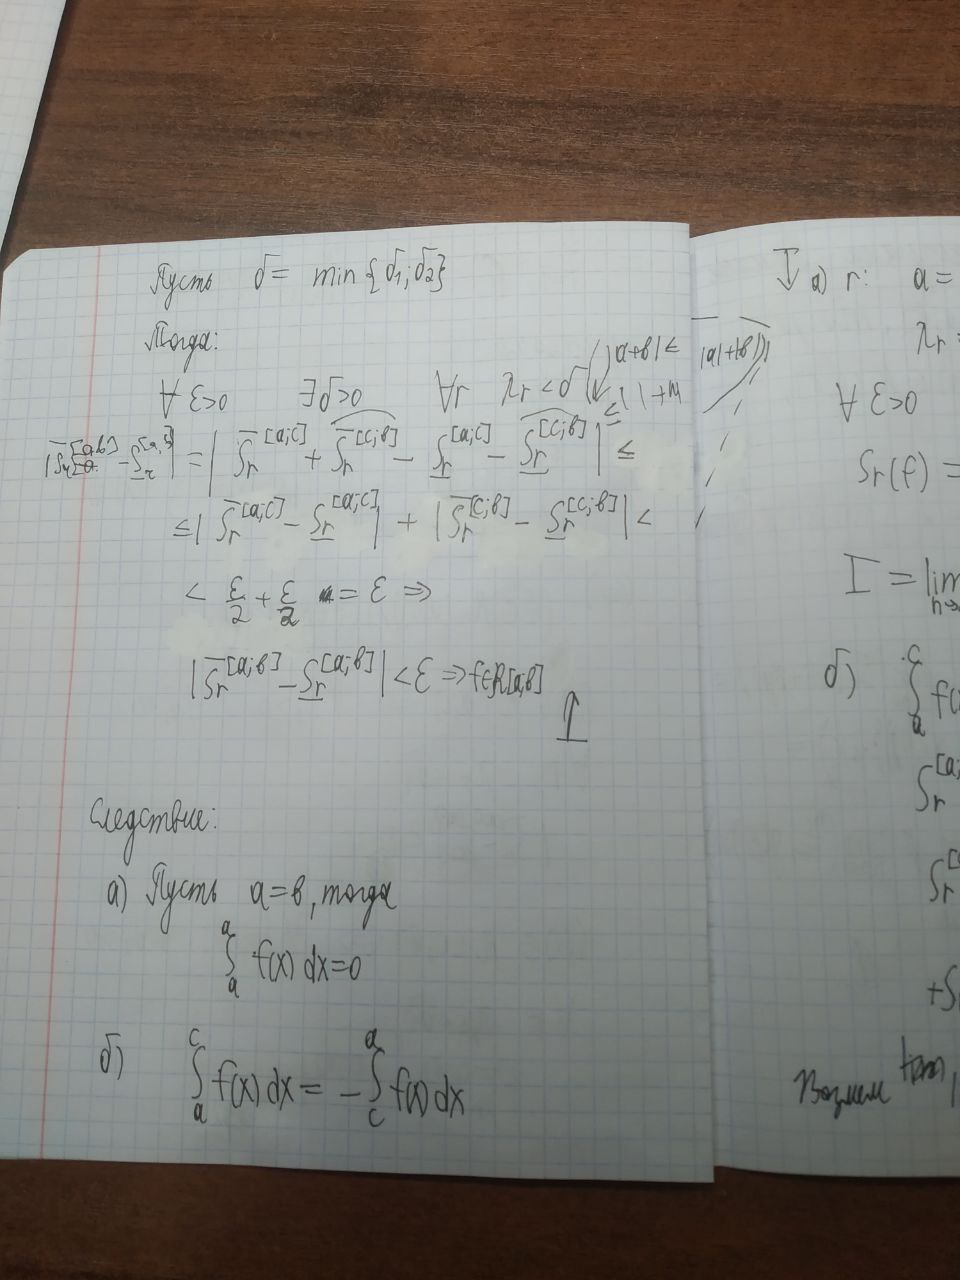 Пусть δ = min{δ₁; δ₂}
Тогда:
∀ ε>0 ∃ δ>0 ∀r λr < δ |a+b| ≤ |a|+|b|
|S̅r^[a;b] - S̲r^[a;b]| = | S̅r^[a;c] + S̅r^[c;b] - S̲r^[a;c] - S̲r^[c;b] | ≤
≤ | S̅r^[a;c] - S̲r^[a;c] | + | S̅r^[c;b] - S̲r^[c;b] | <
< ε/2 + ε/2 = ε ⇒
| S̅r^[a;b] - S̲r^[a;b] | < ε ⇒ f∈R[a;b]
Следствие:
а) Пусть a=b, тогда
∫ₐᵃ f(x) dx=0
б) ∫ₐᶜ f(x) dx = - ∫cᵃ f(x) dx
а) r: a =
λr =
∀ ε>0
Sr(f) =
I = lim n→
б) ∫ₐᶜ f(x
Sr^[a;
Sr^[
+S
Возьмем